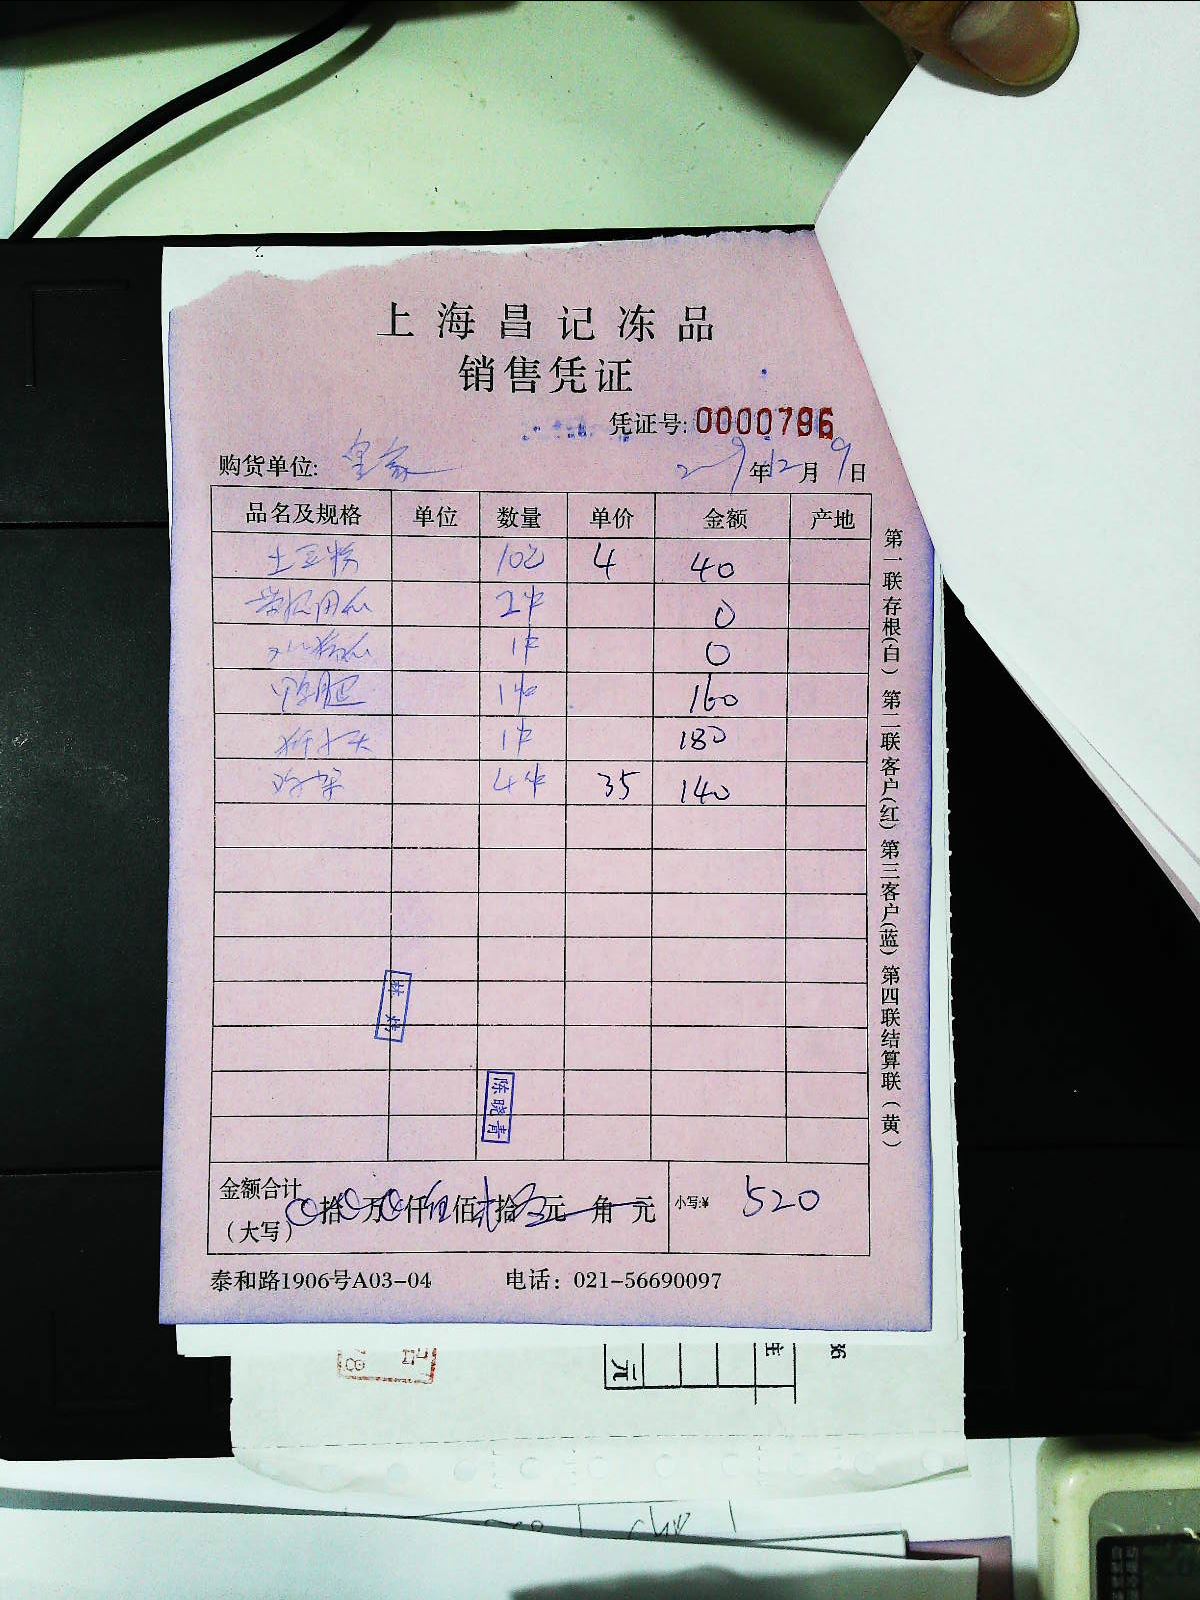 上海昌记冻品
销售凭证
凭证号: 0000796
购货单位: 皇家 年12月9日
品名及规格 单位 数量 单价 金额 产地
土豆粉 10包 4 40
2件 0
1件 0
1件 160
1件 180
4件 35 140
林
陈晓青
金额合计
(大写) 拾 万 仟伍佰贰拾 元 角 元 小写:¥ 520
泰和路1906号A03-04 电话: 021-56690097
第一联存根(白) 第二联客户(红) 第三客户(蓝) 第四联结算联(黄)
元